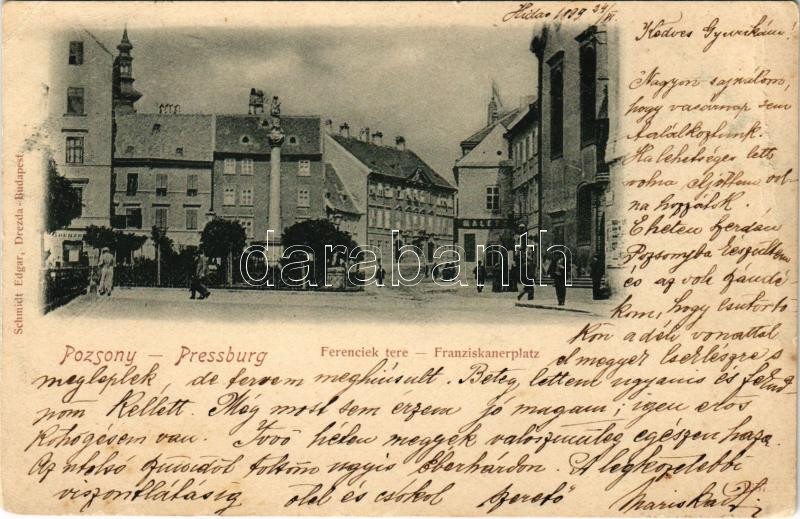 Hidas 1899 24/VI.
Kedves Gyurikám!
Nagyon sajnálom,
hogy vasárnap sem
találkoztunk.
Ha lehetséges lett
volna eljöttem vol-
na hozzátok.
E héten szerdán
Pozsonyba készültem
és az volt szándé-
kom, hogy csütörtö-
kön a déli vonattal
el megyek Cserlészre s
megleplek, de tervem meghiúsult. Beteg lettem ugyanis és feküd-
nöm kellett. Még most sem érzem jó magam; igen erős
köhögésem van. Jövő héten megyek valószínűleg egészen haza.
Az utolsó szünidőt töltöm úgyis Eberhárdon. A legközelebbi
viszontlátásig ölel és csókol szerető Mariskád
Pozsony — Pressburg
Ferenciek tere — Franziskanerplatz
Schmidt Edgar, Drezda-Budapest
darabanth.com